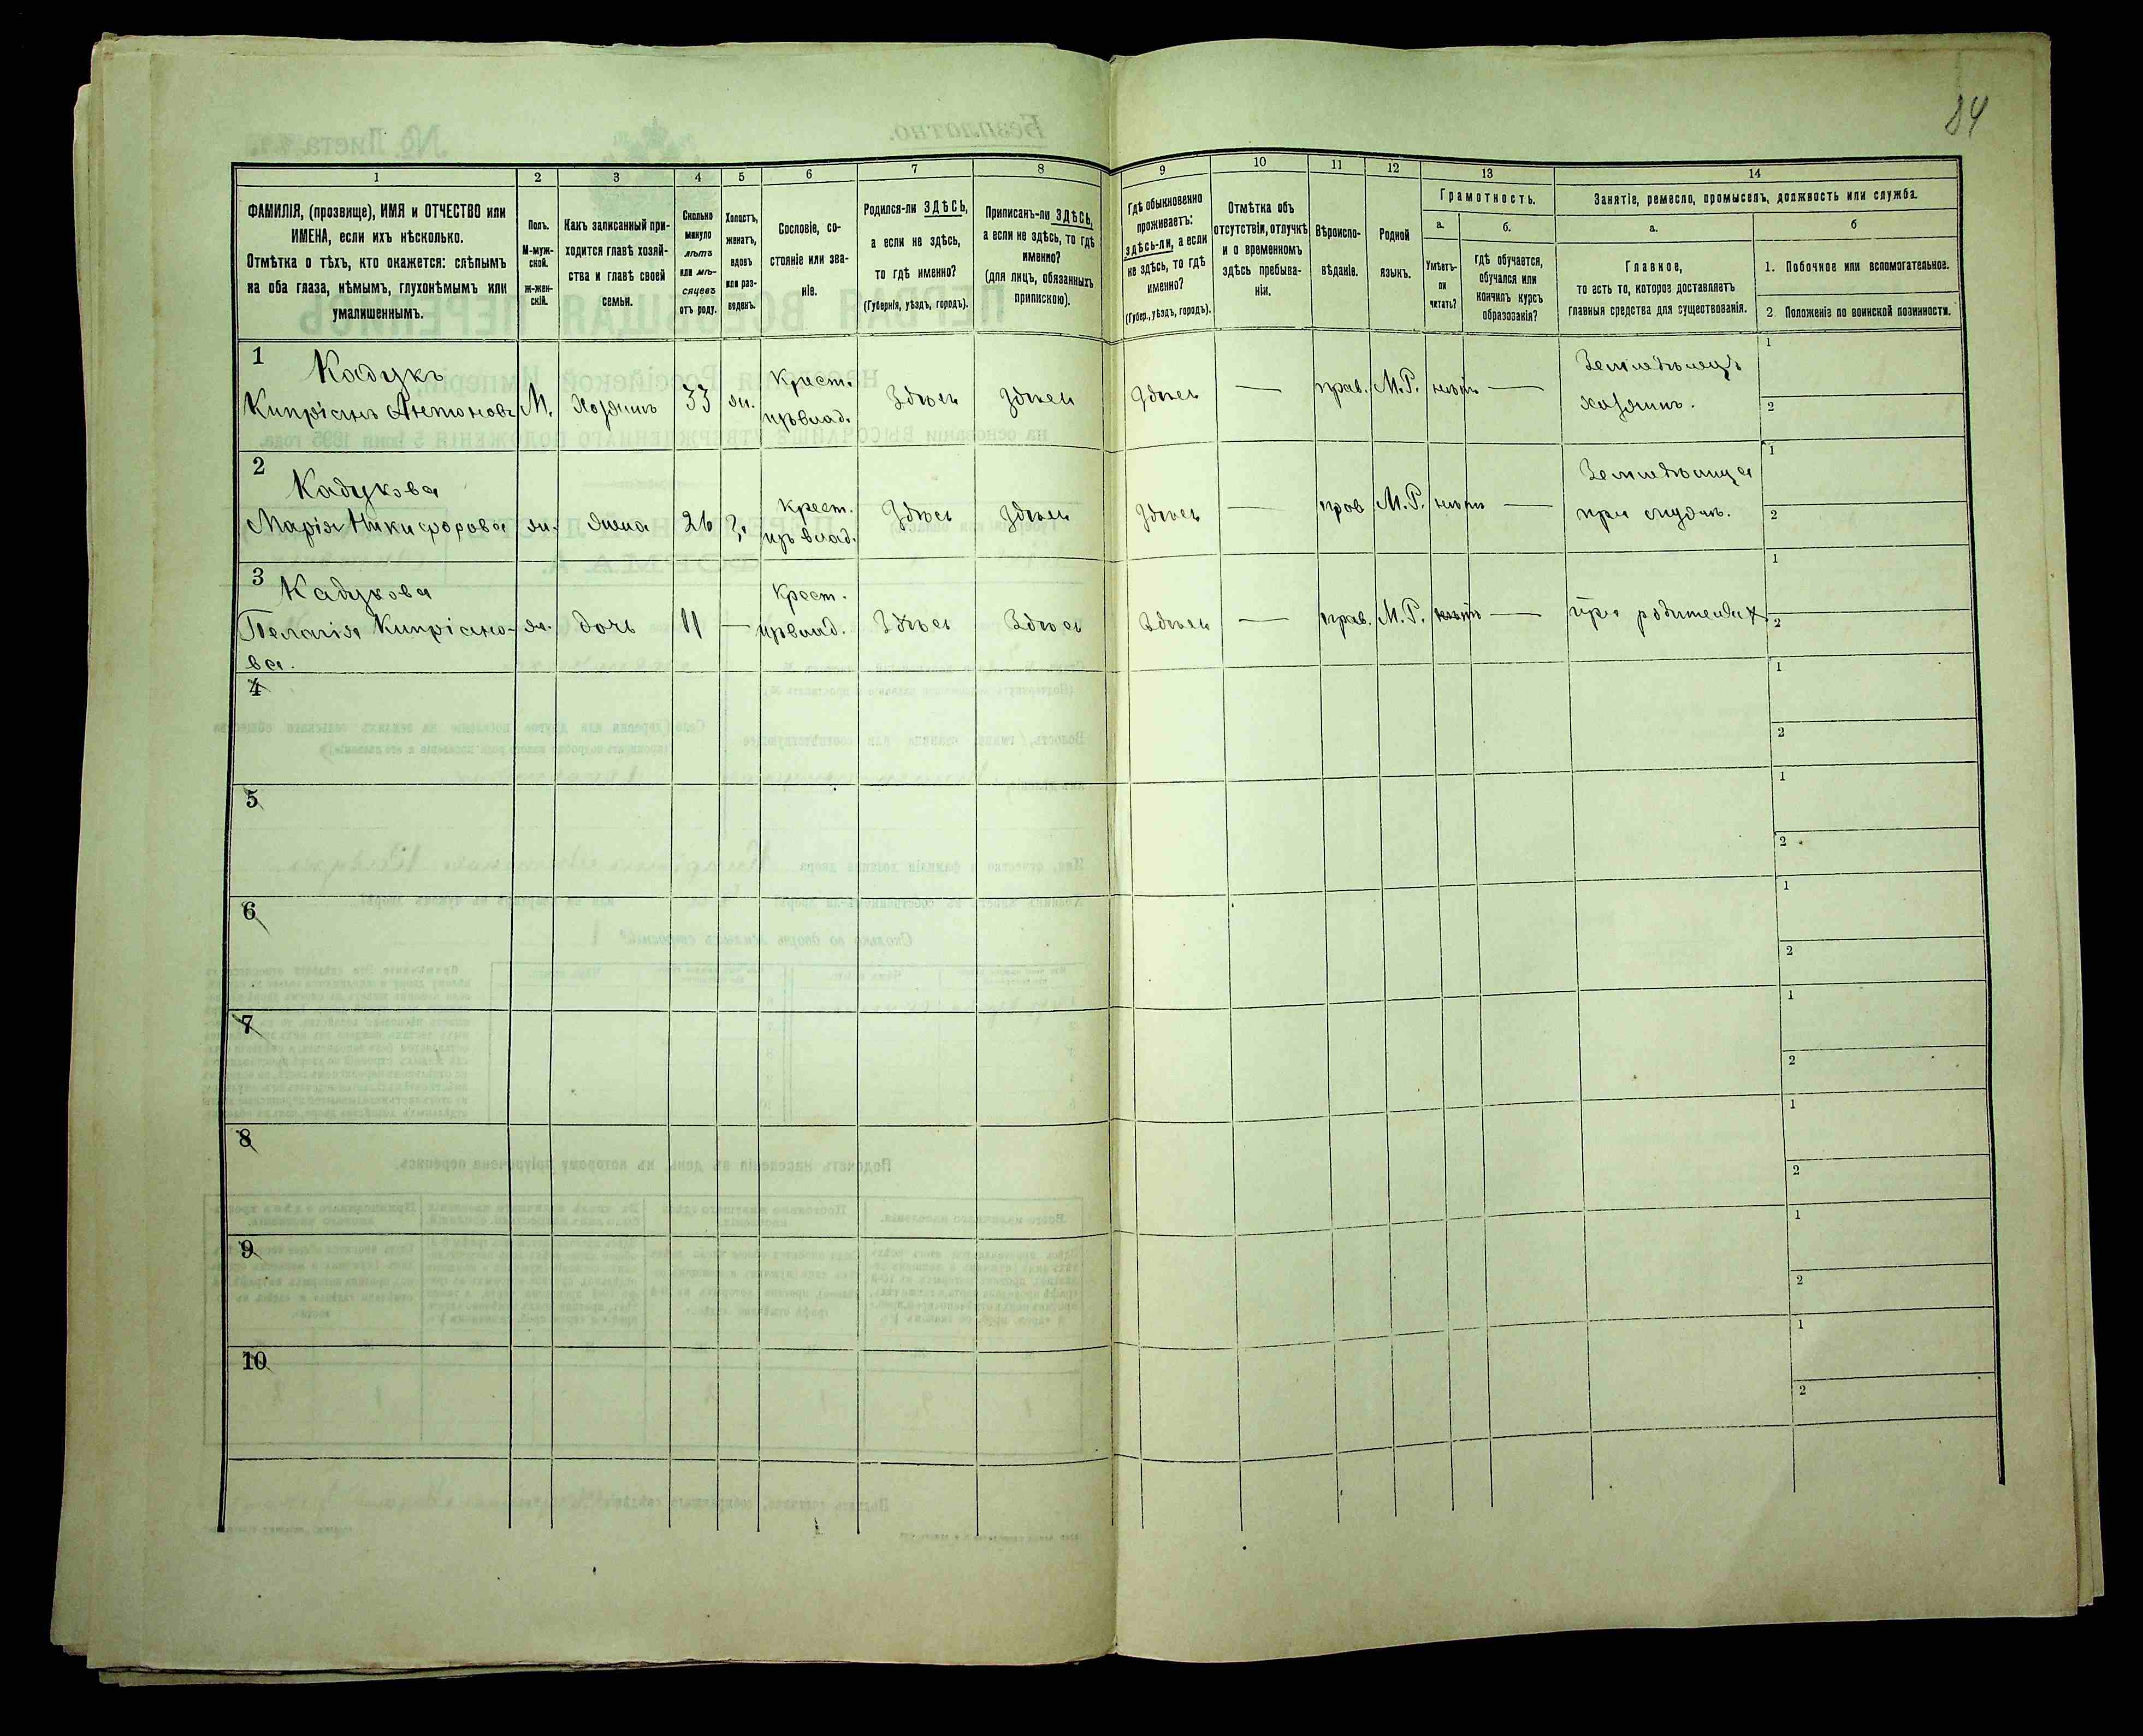 84
1
2
3
4
5
6
7
8
9
10
11
12
13
14
ФАМИЛІЯ, (прозвище), ИМЯ и ОТЧЕСТВО или
ИМЕНА, если ихъ нѣсколько.
Отмѣтка о тѣхъ, кто окажется: слѣпымъ
на оба глаза, нѣмымъ, глухонѣмымъ или
умалишеннымъ.
Полъ.
М-муж-
ской.
ж-жен-
скій.
Какъ записанный при-
ходится главѣ хозяй-
ства и главѣ своей
семьи.
Сколько
минуло
лѣтъ
или мѣ-
сяцевъ
отъ роду.
Холостъ,
женатъ,
вдовъ
или раз-
веденъ.
Сословіе, со-
стояніе или зва-
ніе.
Родился-ли ЗДѢСЬ,
а если не здѣсь,
то гдѣ именно?
(Губернія, уѣздъ, городъ).
Приписанъ-ли ЗДѢСЬ,
а если не здѣсь, то гдѣ
именно?
(для лицъ, обязанныхъ
припискою).
Гдѣ обыкновенно
проживаетъ:
здѣсь-ли, а если
не здѣсь, то гдѣ
именно?
(Губер., уѣздъ, городъ).
Отмѣтка объ
отсутствіи, отлучкѣ
и о временномъ
здѣсь пребыва-
ніи.
Вѣроиспо-
вѣданіе.
Родной
языкъ.
Грамотность.
а.
Умѣетъ-
ли
читать?
б.
гдѣ обучается,
обучался или
кончилъ курсъ
образованія?
Занятіе, ремесло, промыселъ, должность или служба.
а.
Главное,
то есть то, которое доставляетъ
главныя средства для существованія.
б
1. Побочное или вспомогательное.
2. Положеніе по воинской повинности.
1 Кадукъ
Кипріанъ Антоновъ М. Хозяинъ 33 ж. Крест. Здѣсь Здѣсь Здѣсь — прав. М.Р. нѣтъ — Земледѣлецъ 1
из влад. хозяинъ. 2
2 Кадукова
Марія Никифорова ж. жена 26 З. Крест. Здѣсь Здѣсь Здѣсь — прав М.Р. нѣтъ — Земледѣлица 1
из влад. при мужѣ. 2
3 Кадукова
Пелагія Кипріано- ж. дочь 11 — Крест. Здѣсь Здѣсь Здѣсь — прав. М.Р. нѣтъ — при родителях 1
ва. из влад. 2
4 1
2
5 1
2
6 1
2
7 1
2
8 1
2
9 1
2
10 1
2